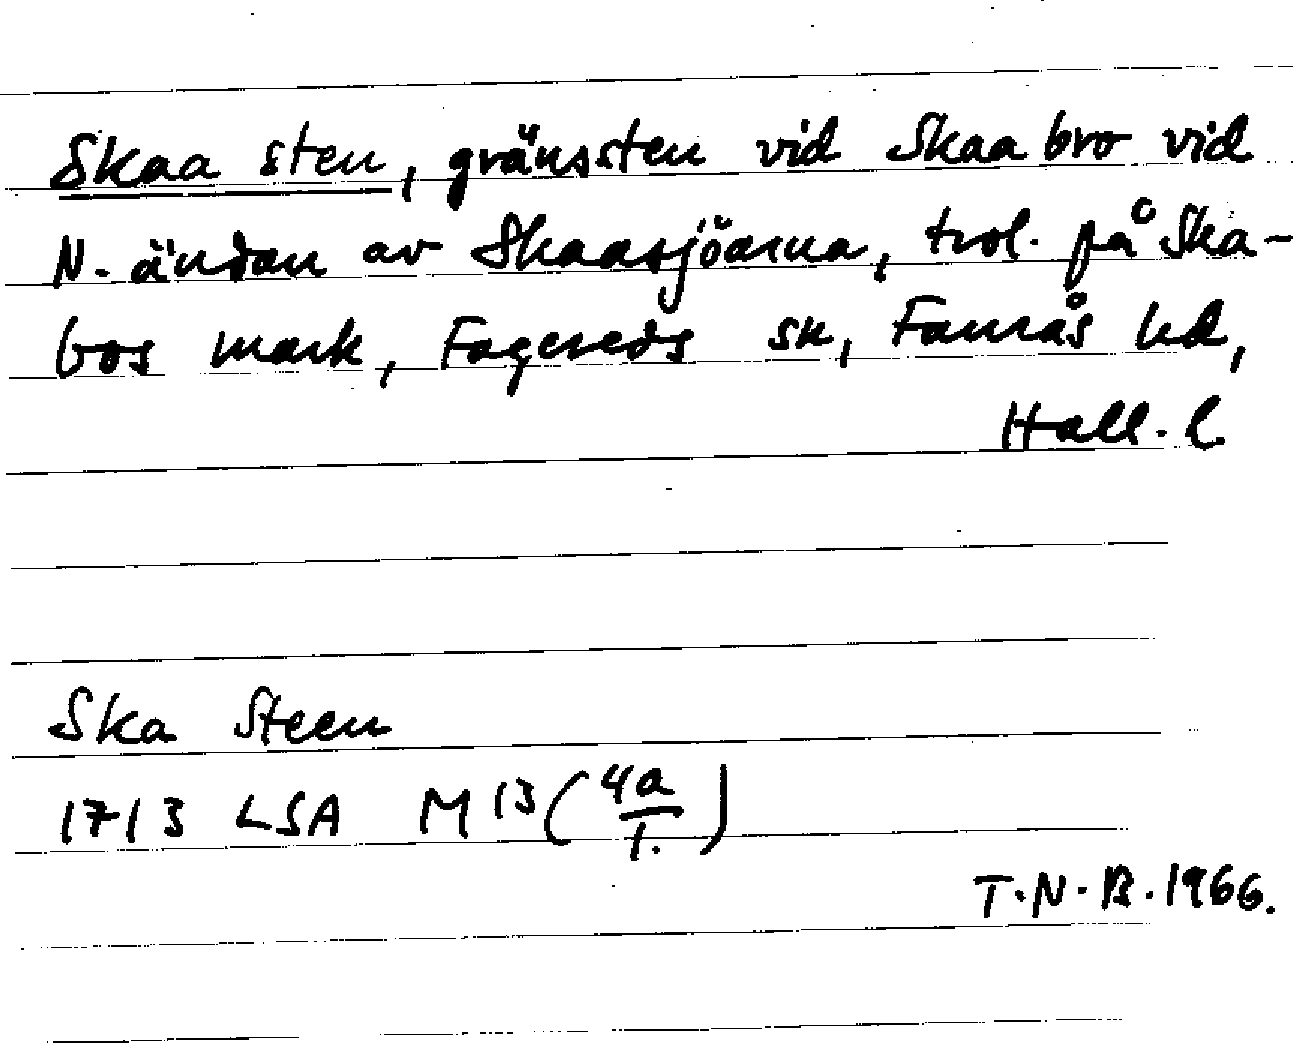 Skaa sten, gränssten vid Skaabro vid
N-ändan av Skaasjöarna, trol. på Ska-
bos mark, Fagereds sn, Faurås hd,
Hall. l.
Ska Steen
1713 LSA M13 (4a/1.)
T.N.B. 1966.